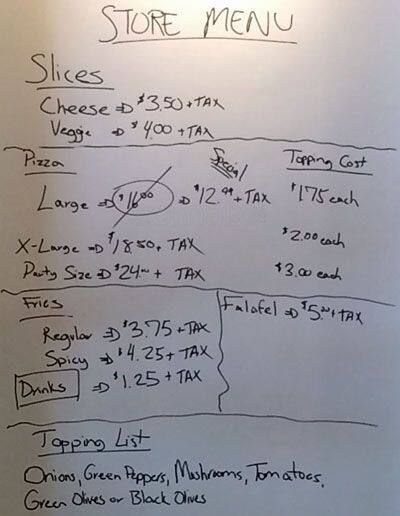 STORE MENU
Slices
Cheese ⇒ $3.50 + TAX
Veggie ⇒ $4.00 + TAX
Pizza Special Topping Cost
Large ⇒ $16.00 ⇒ $12.99 + TAX $1.75 each
X-Large ⇒ $18.50 + TAX $2.00 each
Party Size ⇒ $24.00 + TAX $3.00 each
Fries Falafel ⇒ $5.00 + TAX
Regular ⇒ $3.75 + TAX
Spicy ⇒ $4.25 + TAX
Drinks ⇒ $1.25 + TAX
Topping List
Onions, Green Peppers, Mushrooms, Tomatoes,
Green Olives or Black Olives